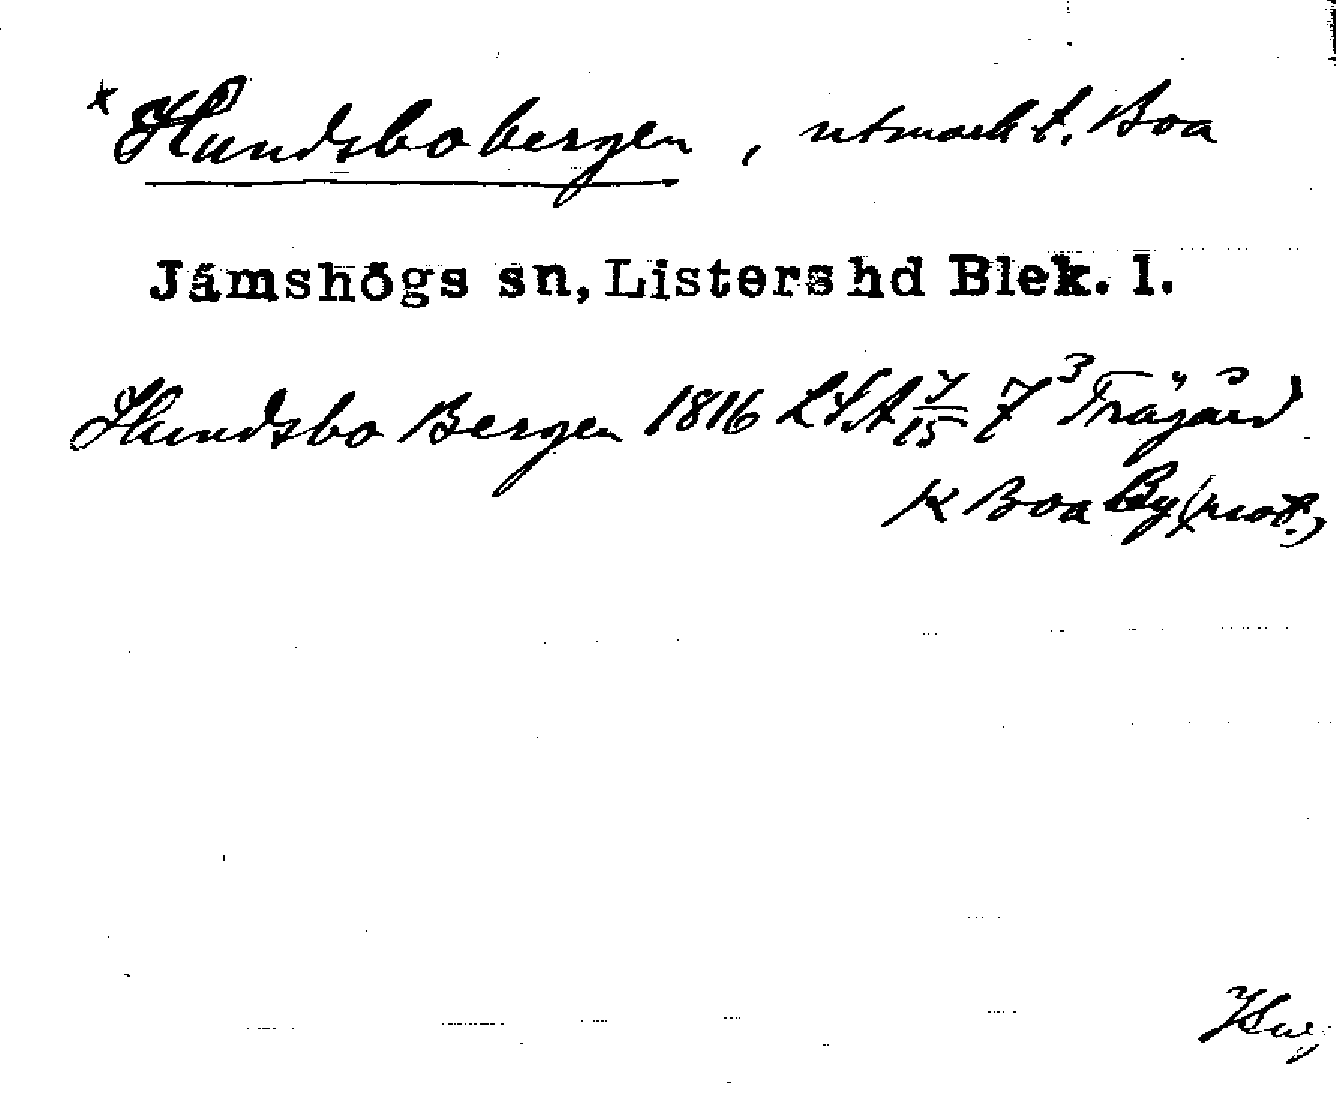 * Hundsbobergen, utmark t. Boa
Jämshögs sn, Listers hd Blek. l.
Hundsbo Bergen 1816 LSA 7³ Trägård
K Boa By (prot.)